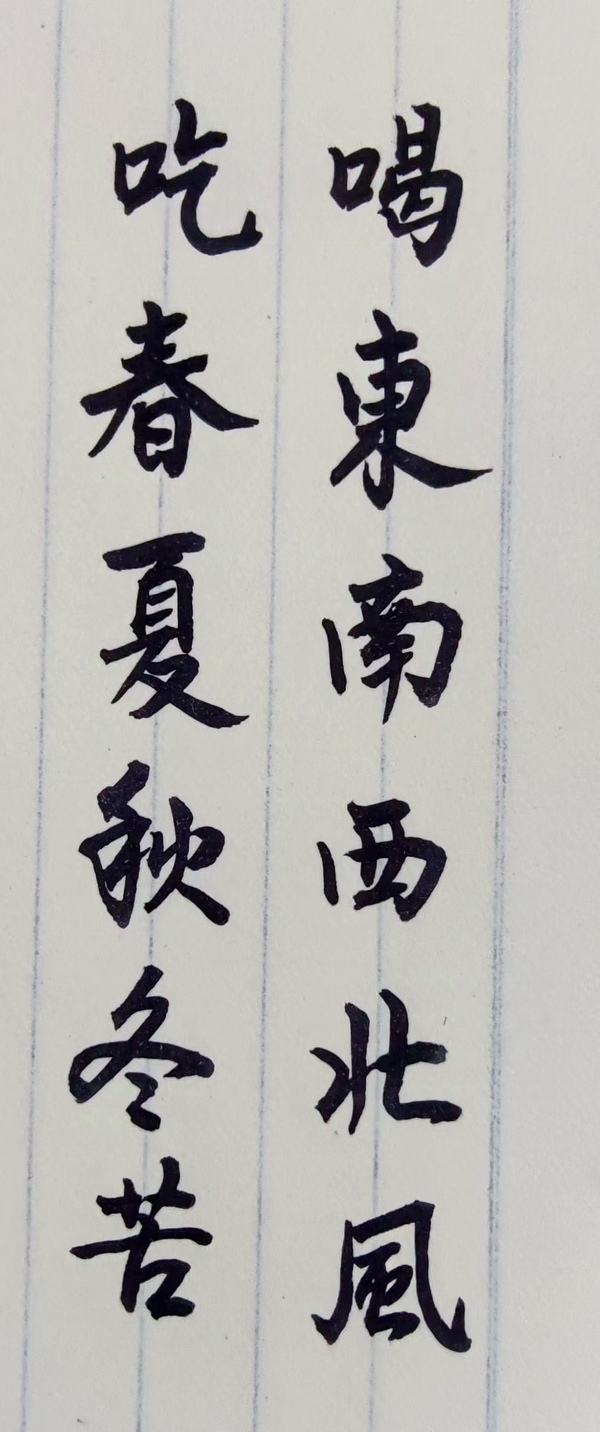 喝東南西北風
吃春夏秋冬苦